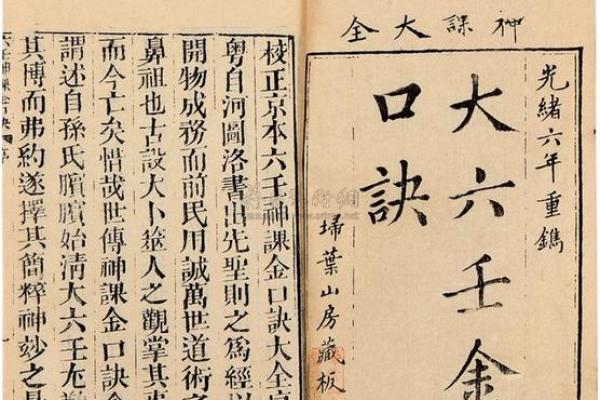 神課大全
光緒六年重鐫
大六壬金
口訣
掃葉山房藏板
校正京本六壬神課金口訣大全
粵自河圖洛書出先聖則之爲經以
開物成務而前民用誠萬世道術之
鼻祖也古設大卜筮人之觀掌其事
而今亡矣惜哉世傳神課金口訣
謂述自孫氏臏臏始清大六壬尤
其博而弗約遂擇其簡粹神妙之
六壬神課金口訣 序